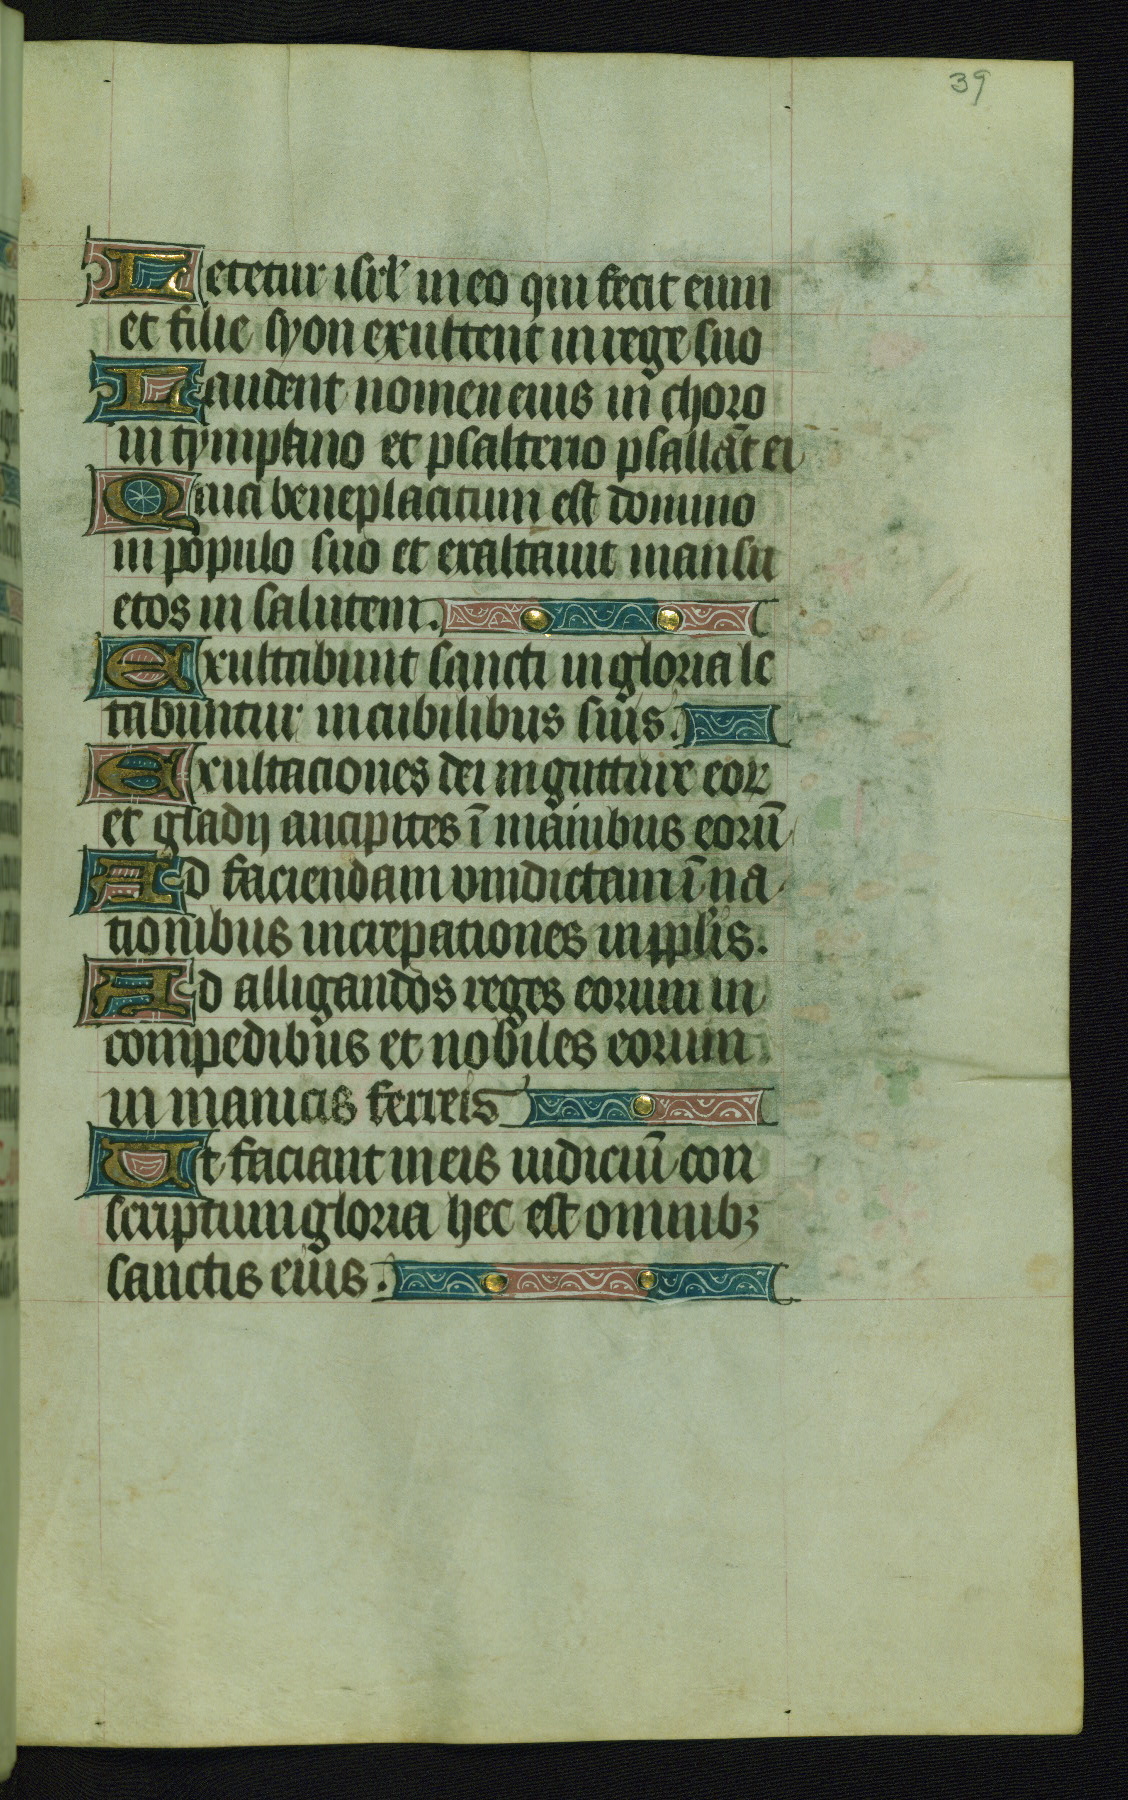 39
Letetur isrl' in eo qui fecit eum
et filie syon exultent in rege suo
Laudent nomen eius in choro
in tympano et psalterio psallāt ei
Quia beneplacitum est domino
in populo suo et exaltauit mansu
etos in salutem.
Exultabunt sancti in gloria le
tabuntur in cubilibus suis.
Exultaciones dei in gutture eoꝝ
et gladij ancipites ī manibus eorū
Ad faciendam vindictam ī na
tionibus increpationes in ppl'is.
Ad alligandos reges eorum in
compedibus et nobiles eorum
in manicis ferreis
Ut faciant in eis iudiciū con
scriptum gloria hec est omnibꝫ
sanctis eius.